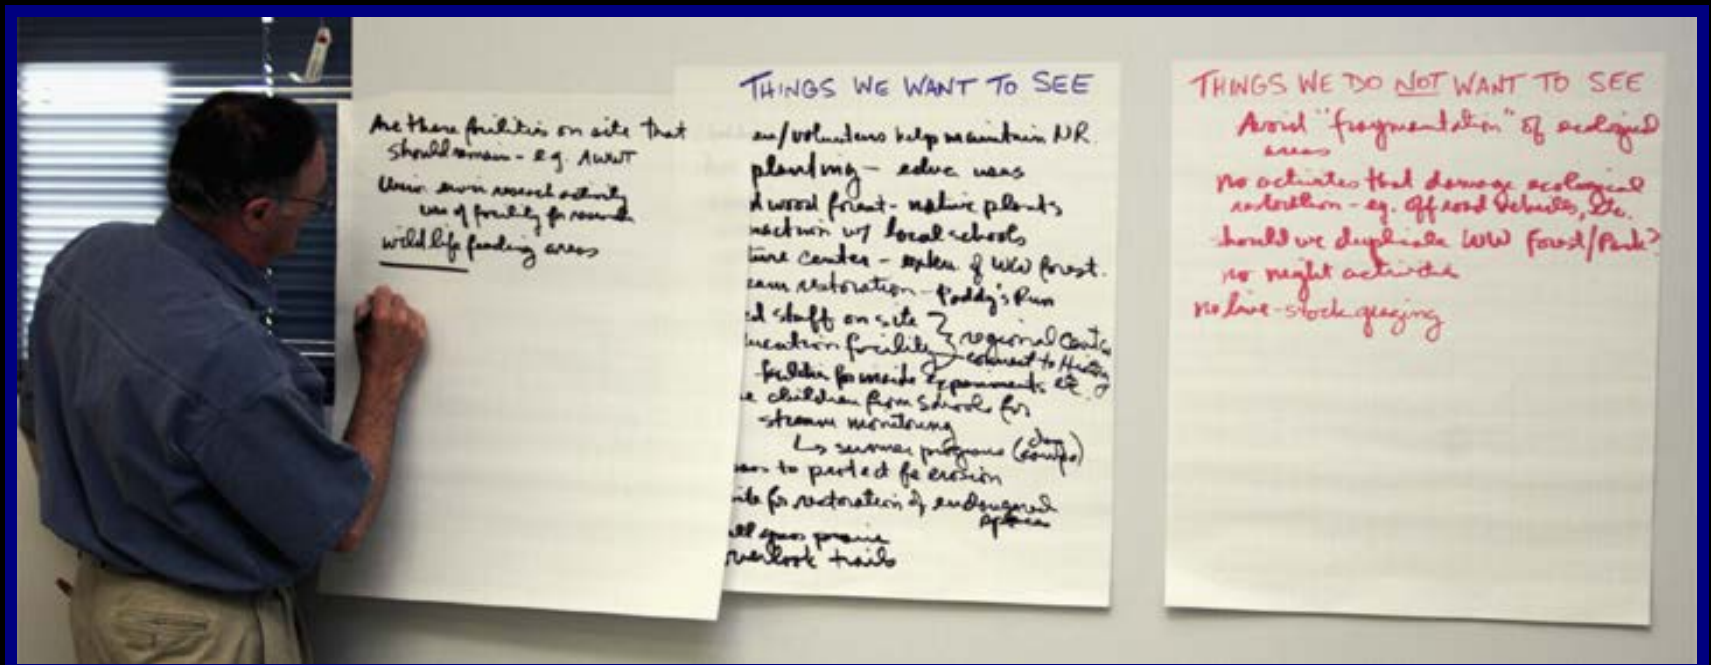 Are there facilities on site that
should remain - e.g. AWWT
Univ. envir research activity
use of facility for research
wildlife feeding areas
THINGS WE WANT TO SEE
/volunteers help maintain NR.
planting - educ uses
wood forest - native plants
w/ local schools
center - exten. of WW forest.
restoration - Paddy's Run
staff on site } regional Center
facility connect to History
for inside experiments etc.
children from schools for
stream monitoring
↳ summer programs (day camps)
to protect fr erosion
for restoration of endangered
species
grass prairie
overlook trails
THINGS WE DO NOT WANT TO SEE
Avoid "fragmentation" of ecological
areas
no activites that damage ecological
restoration - eg. Off road Vehicles, etc.
should we duplicate WW Forest/Park?
no night activities
no live-stock grazing